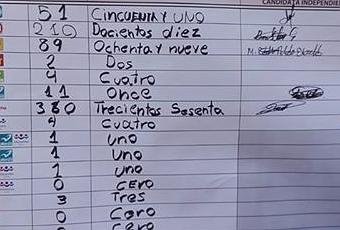 CANDIDATA INDEPENDIE
51 CINCUENTA Y UNO
210 Docientos diez
89 Ochenta y nueve
2 Dos
4 Cuatro
11 Once
380 Trecientos Sesenta
4 Cuatro
1 uno
1 Uno
1 uno
0 CERO
3 Tres
0 Cero
Cero